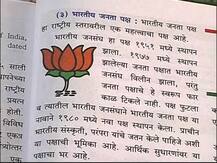 India,
dated
(३) भारतीय जनता पक्ष : भारतीय जनता पक्ष
हा राष्ट्रीय स्तरावरील एक महत्त्वाचा पक्ष आहे.
भारतीय जनसंघ हा पक्ष १९५१ मध्ये स्थापन
झाला. १९७७ मध्ये स्थापन
झालेल्या जनता पक्षात भारतीय
जनसंघ विलीन झाला, परंतु
जनता पक्षाचे हे स्वरूप फार
काळ टिकले नाही. पक्ष फुटला
व त्यातील भारतीय जनसंघाने भारतीय जनता पक्ष या
नावाने १९८० मध्ये नवा पक्ष स्थापन केला. प्राचीन
भारतीय संस्कृती, परंपरा यांचे जतन केले पाहिजे अशी
पक्षाची भूमिका आहे. आर्थिक सुधारणांवर या
पक्षाचा भर आहे.